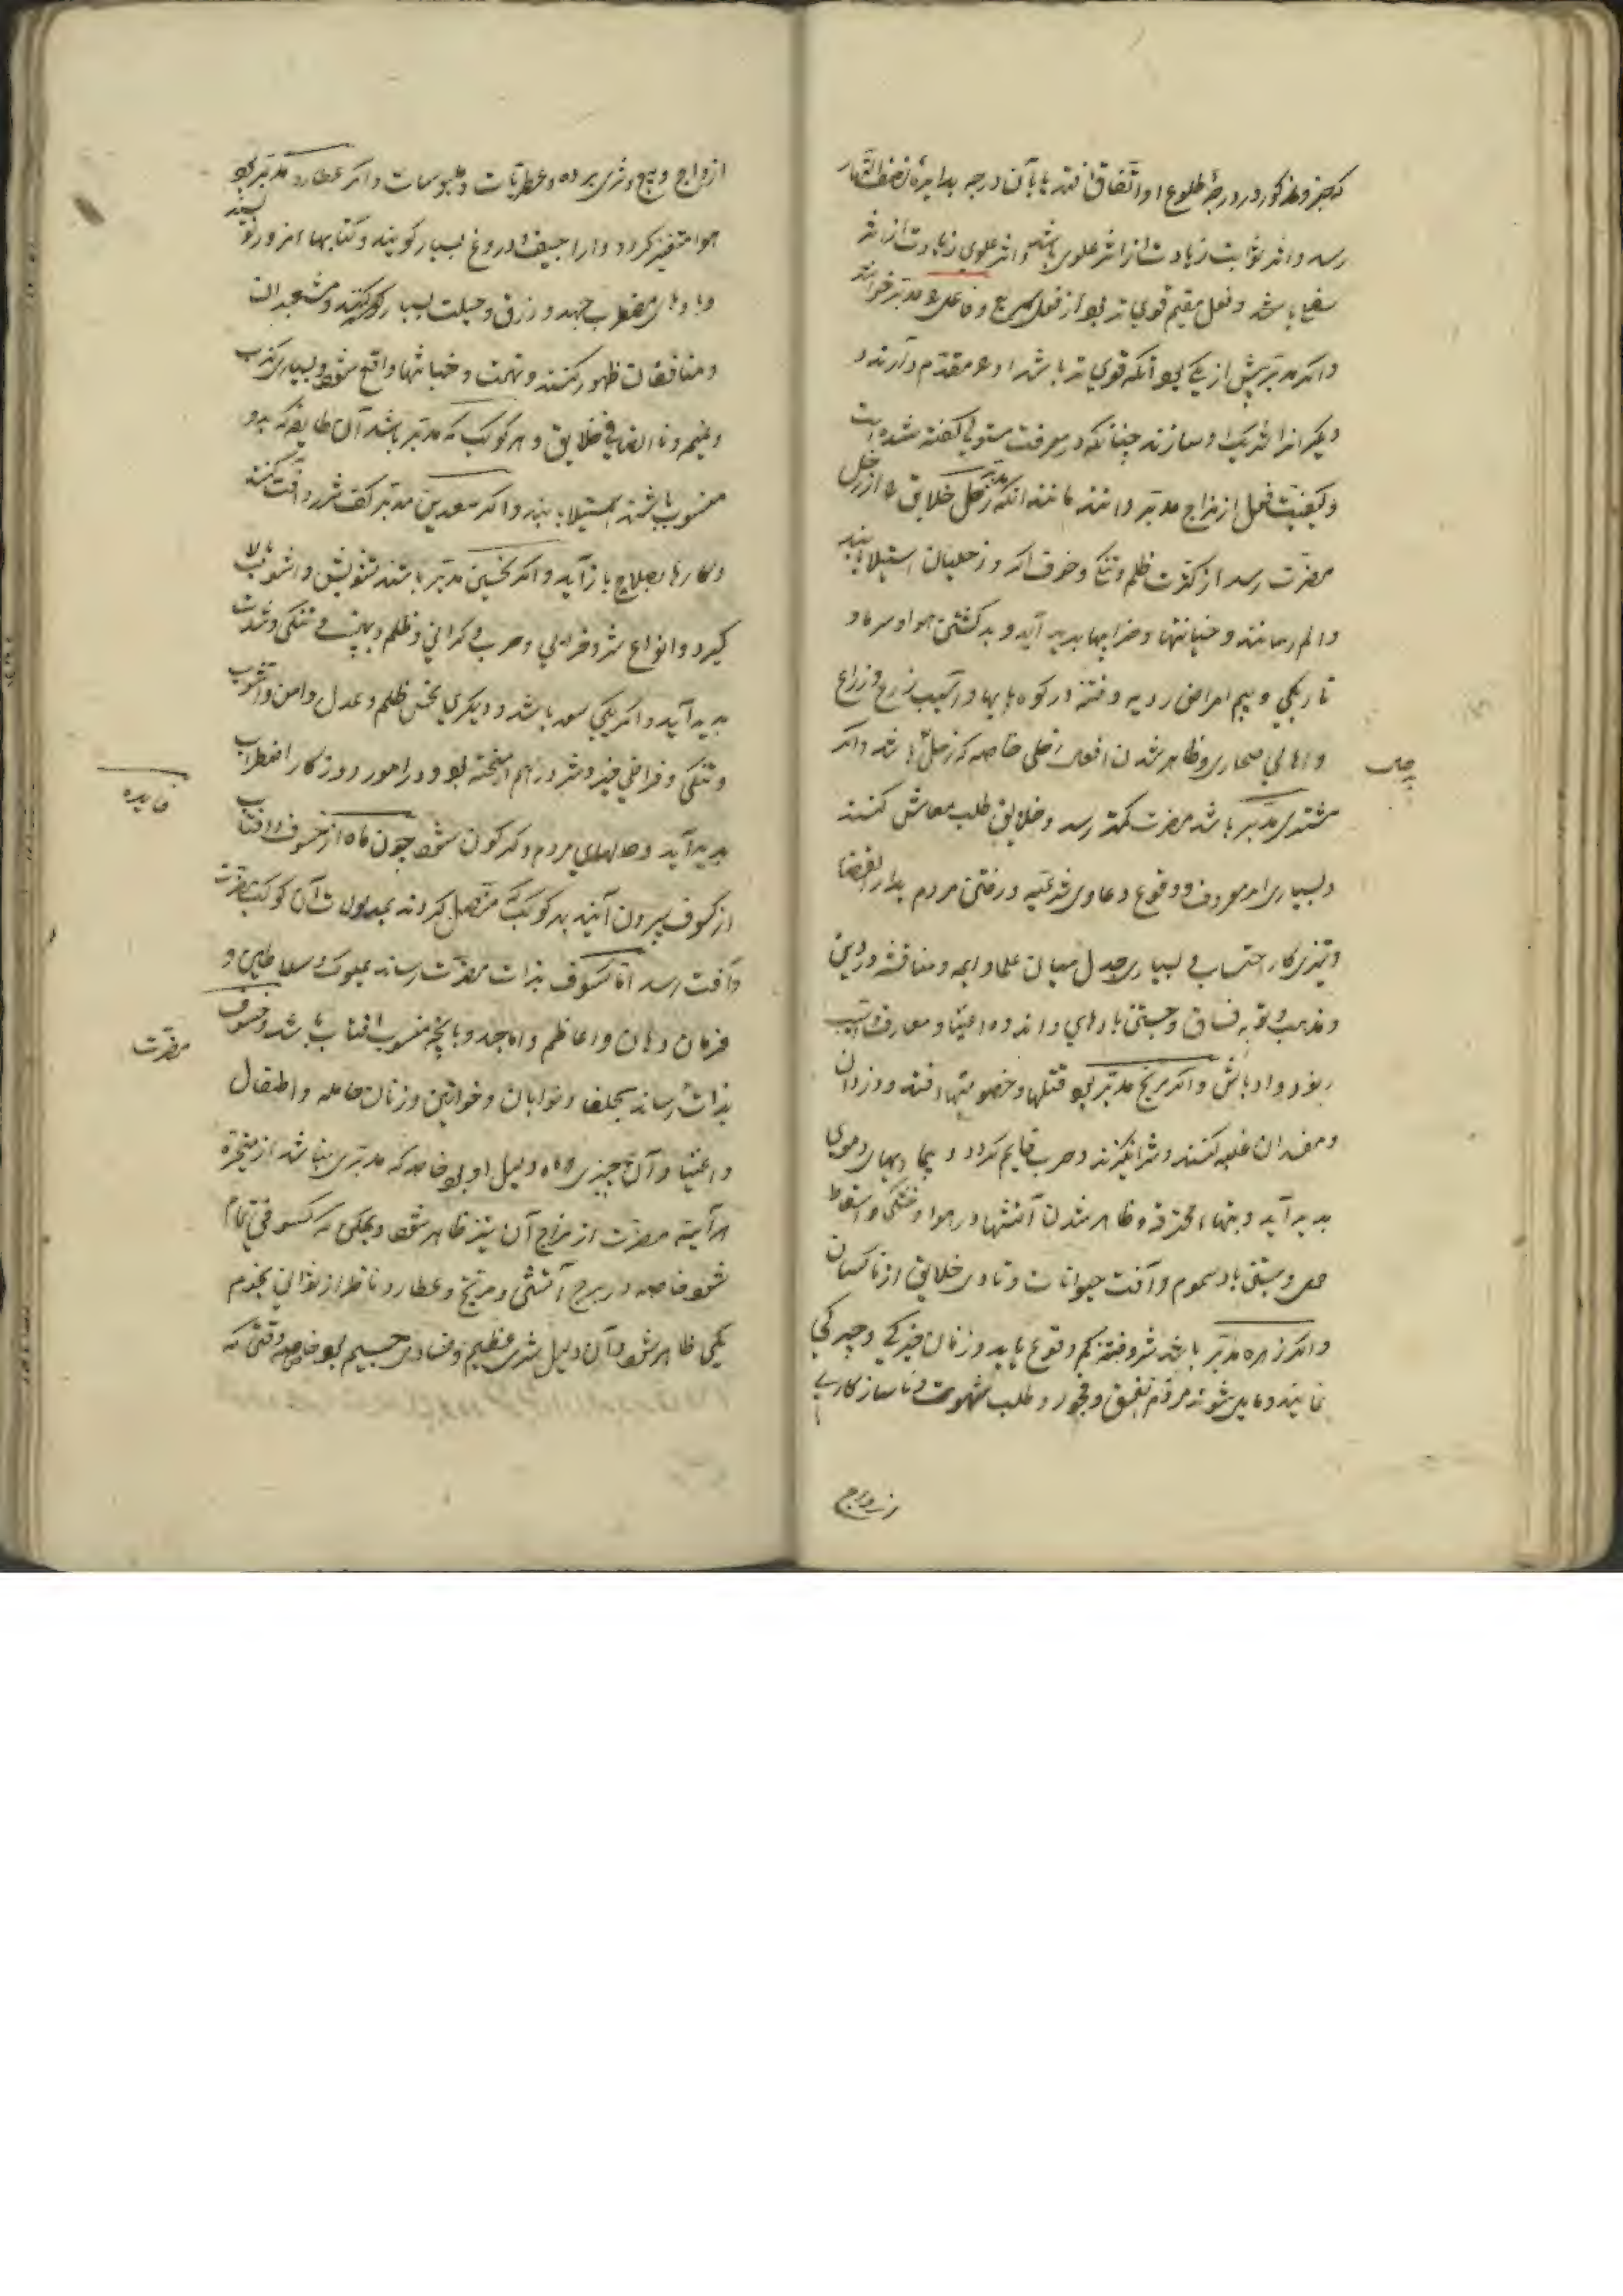 که جزو مذکور در درجهٔ طلوع او اتفاق افتد یا بآن درجه بدایرهٔ نصف النهار
رسد و اثر ثوابت زیادت از اثر علوی باشد و اثر علوی زیادت از اثر
سفلی باشد و فعل مقیم قوی تر بود از فعل سریع و فاعل مدبر خوانند
و اگر مدبر بیش از یکی بود آنکه قوی تر باشد او مقدم دارند و
دیگرانرا شریک او سازند چنانکه در معرفت مستولی گفته شده است
و کیفیت فعل از مزاج مدبر دانند مانند آنکه زحل مدبر خلایق از زحل
مضرت رسد از کثرت ظلم و تنگی و خوف اگر و زحلیان استیلا یابند
و الم رسانند و خیانتها و خرابیها پدید آید و بد گشتن هوا و سرما و
تاریکی و بیم امراض ردیه و فتنه در کوه پایها و آسیب زرع و زراع
و اهالی صحاری و ظاهر شدن افعال زحلی خاصه که زحل باشد و اگر
مشتری مدبر باشد مضرت کمتر رسد و خلایق طلب معاش کنند
و بسیاری امر معروف و وقوع دعاوی شرعیه و رفتن مردم بدار القضا
و تیزی کار احتساب و بسیاری جدل میان علما و ایمه و مناقشه در دین
و مذهب و توبه فساق و جستن بادهای و اندوه اغنیا و معارف
رنود و اوباش و اگر مریخ مدبر بود قتلها و خصومتها افتد و دزدان
و مفسدان غلبه کنند و شر انگیزند و حرب قایم گردد و بیماریهای دموی
پدید آید و تبهاء محترقه و ظاهر شدن آتشها در هوا و خشکی و اسقاط
حمل و جستن باد سموم و آفت حیوانات و تاذی خلایق از ناکسان
و اگر زهره مدبر باشد شر و فتنه کم وقوع یابد و زنان خیرگی و چیرگی
نمایند و مایل شوند مردم بفسق و فجور و طلب شهوت و ناسازکاری
ازدواج
ازواج و بیع و شری برده و عطریات و ملبوسات و اگر عطارد مدبر بود
هوا متغیر گردد و اراجیف و دروغ بسیار گویند و کتابهاء مزور نویسند
و بادهای مضطرب جهد و زرق و حیلت بسیار کنند و مشعبدان
و منافقان ظهور کنند و تهمت و خیانتها واقع شود و بسیاری کذب
و نمیم و ناانصافی خلایق و هر کوکب که مدبر باشد آن طایفه که بدو
منسوب باشند استیلا یابند و اگر سعدین مدبر کف شر و آفت کنند
و کارها بصلاح باز آید و اگر نحسین مدبر باشند تشویش و آشوب بالا
گیرد و انواع شر و خرابی و حرب و گرانی و ظلم و تنگی و شدت
پدید آید و اگر یکی سعد باشد و دیگری نحس ظلم و عدل و امن و آشوب
و تنگی و فراخی خیر و شر در هم آمیخته بود و در امور روزگار اضطراب
فایده
پدید آید و حالهای مردم دگرگون شود چون ماه از خسوف و آفتاب
از کسوف بیرون آیند بهر کوکب که متصل گردند بمدلولات آن کوکب مضرت
و آفت رسد اما کسوف بذات مضرت رساند بملوک و سلاطین و
فرمان دهان و اعاظم و اماجد و بانچه منسوب بافتاب باشد و خسوف
مضرت
بذات رساند بخلفا و نوابان و خواتین و زنان حامله و اطفال
و اغنیا و آن چیزی ماه دلیل او بود خاصه که مدبری نباشد از متحیره
هر آینه مضرت از مزاج آن نیز ظاهر شود و ممکن که کسوفی تمام
شود خاصه در برج آتشی و مریخ و عطارد ناظر از نورانی نجوم
یکی ظاهر شود آن دلیل شری عظیم و فسادی جسیم بود خاصه وقتی که